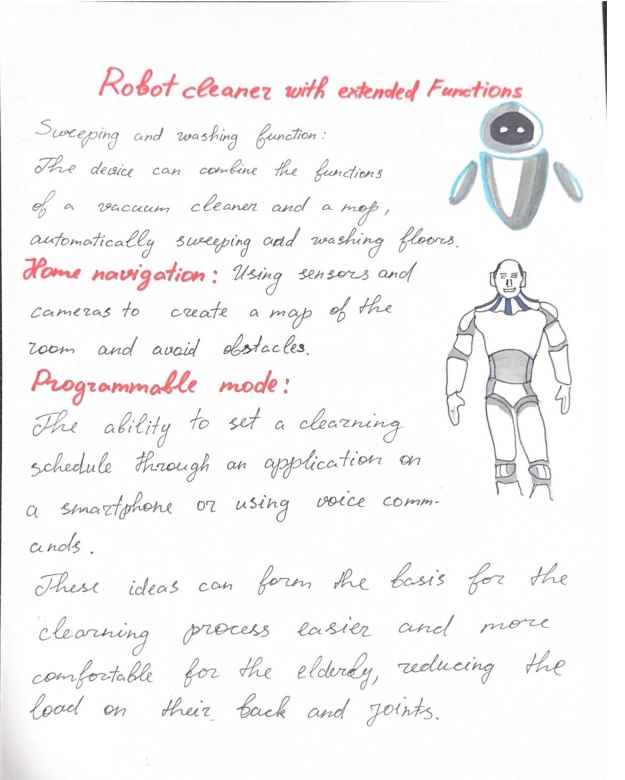 Robot cleaner with extended Functions
Sweeping and washing function:
The device can combine the functions
of a vacuum cleaner and a mop,
automatically sweeping and washing floors.
Home navigation: Using sensors and
cameras to create a map of the
room and avoid obstacles.
Programmable mode:
The ability to set a clearning
schedule through an application on
a smartphone or using voice comm-
ands.
These ideas can form the basis for the
clearning process easier and more
comfortable for the elderly, reducing the
load on their back and joints.